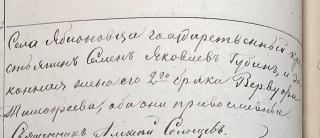 Села Яблоновца государственный кре
стьянин Семен Яковлев Губин, и за
конная жена его 2го брака Варвара
Тимофеева, оба они православные
Священник Алексей Солнцев.